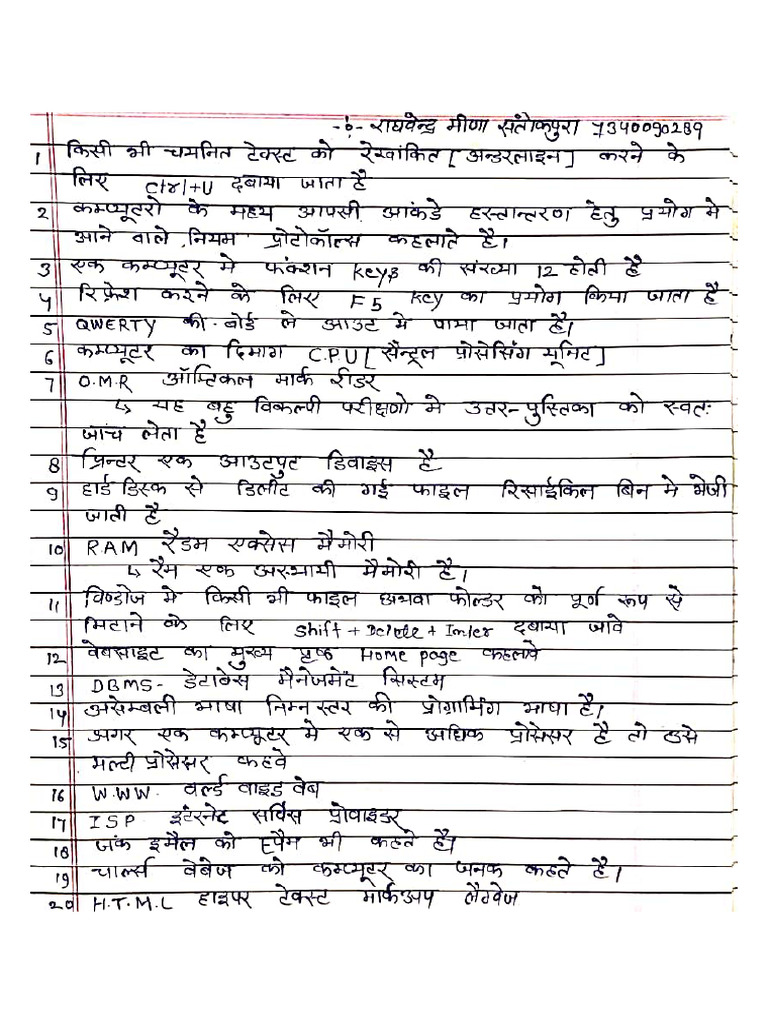 -:- राघवेन्द्र मीणा संतोकपुरा 7340090289
1 किसी भी चयनित टेक्स्ट को रेखांकित [अन्डरलाइन] करने के
लिए Ctrl+U दबाया जाता है
2 कम्प्यूटरो के मध्य आपसी आंकडे हस्तान्तरण हेतु प्रयोग मे
आने वाले नियम प्रोटोकॉल्स कहलाते है।
3 एक कम्प्यूटर मे फंक्शन keys की संख्या 12 होती है
4 रिफ्रेश करने के लिए F5 key का प्रयोग किया जाता है
5 QWERTY की-बोर्ड ले आउट मे पाया जाता है।
6 कम्प्यूटर का दिमाग C.P.U [सैन्ट्रल प्रोसेसिंग यूनिट]
7 O.M.R ऑप्टिकल मार्क रीडर
↳ यह बहु विकल्पी परीक्षणो मे उत्तर-पुस्तिका को स्वतः
जांच लेता है
8 प्रिन्टर एक आउटपुट डिवाइस है
9 हार्ड डिस्क से डिलीट की गई फाइल रिसाईकिल बिन मे भेजी
जाती है
10 R.A.M रैडम एक्सेस मैमोरी
↳ रैम एक अस्थायी मैमोरी है।
11 विण्डोज मे किसी भी फाइल अथवा फोल्डर को पूर्ण रूप से
मिटाने के लिए Shift + Delete + Inter दबाया जावे
12 वेबसाइट का मुख्य पृष्ठ Home page कहलावे
13 DBMS- डेटाबेस मैनेजमेंट सिस्टम
14 असेम्बली भाषा निम्न स्तर की प्रोग्रामिंग भाषा है।
15 अगर एक कम्प्यूटर मे एक से अधिक प्रोसेसर है तो उसे
मल्टी प्रोसेसर कहवे
16 W.W.W. वर्ल्ड वाइड वेब
17 ISP इंटरनेट सर्विस प्रोवाइडर
18 जंक इमैल को स्पैम भी कहते है।
19 चार्ल्स बेबेज को कम्प्यूटर का जनक कहते है।
20 H.T.M.L हाइपर टेक्स्ट मार्कअप लैंग्वेज